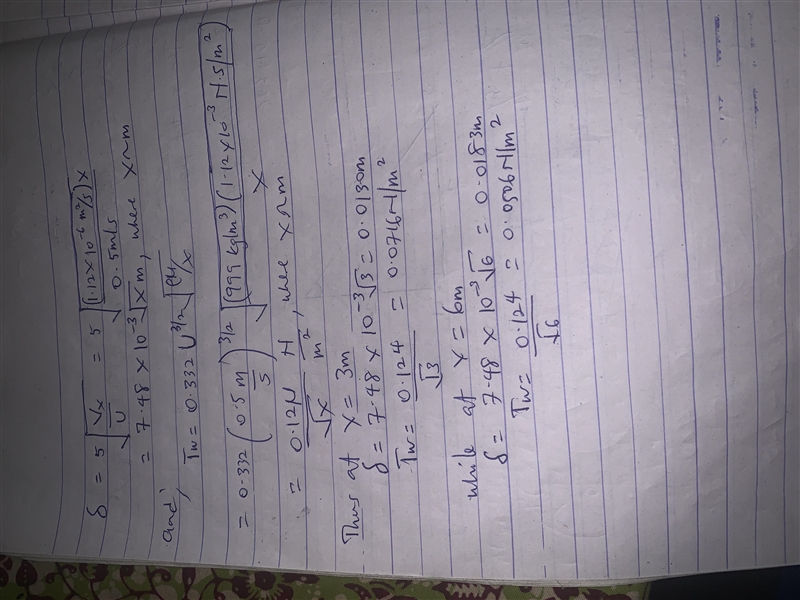 δ = 5 √(Vx/U) = 5 √((1.12 × 10⁻⁶ m²/s) x / 0.5 m/s)
= 7.48 × 10⁻³ √x m, where x ~ m
and,
Tw = 0.332 U^3/2 √(ρμ/x)
= 0.332 (0.5 m/s)^3/2 √((999 kg/m³)(1.12 × 10⁻³ N.S/m²) / x)
= 0.12N/√x N/m², where x ~ m
Thus at x = 3m
δ = 7.48 × 10⁻³ √3 = 0.0130m
Tw = 0.124/√3 = 0.0716 N/m²
while at x = 6m
δ = 7.48 × 10⁻³ √6 = 0.0183m
Tw = 0.124/√6 = 0.0506 N/m²